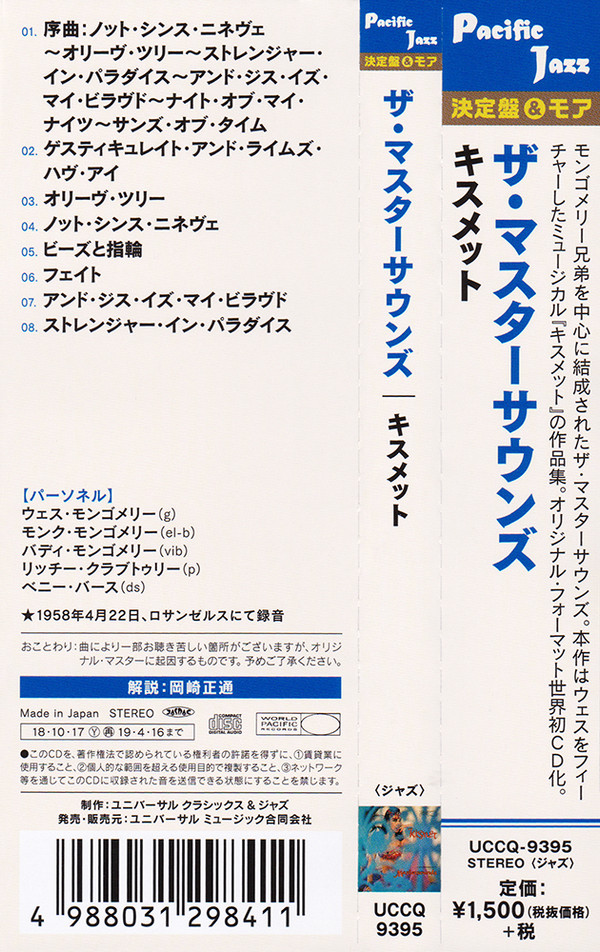 01. 序曲:ノット・シンス・ニネヴェ
〜オリーヴ・ツリー〜ストレンジャー・
イン・パラダイス〜アンド・ジス・イズ・
マイ・ビラヴド〜ナイト・オブ・マイ・
ナイツ〜サンズ・オブ・タイム
02. ゲスティキュレイト・アンド・ライムズ・
ハヴ・アイ
03. オリーヴ・ツリー
04. ノット・シンス・ニネヴェ
05. ビーズと指輪
06. フェイト
07. アンド・ジス・イズ・マイ・ビラヴド
08. ストレンジャー・イン・パラダイス
【パーソネル】
ウェス・モンゴメリー(g)
モンク・モンゴメリー(el-b)
バディ・モンゴメリー(vib)
リッチー・クラブトゥリー(p)
ベニー・バース(ds)
★1958年4月22日、ロサンゼルスにて録音
おことわり:曲により一部お聴き苦しい箇所がございますが、オリジ
ナル・マスターに起因するものです。予めご了承ください。
解説:岡崎正通
Made in Japan STEREO
COMPACT
disc
DIGITAL AUDIO
WORLD
PACIFIC
RECORDS
18・10・17 Ⓨ 再 19・4・16まで
●このCDを、著作権法で認められている権利者の許諾を得ずに、①賃貸業に
使用すること、②個人的な範囲を超える使用目的で複製すること、③ネットワーク
等を通じてこのCDに収録された音を送信できる状態にすることを禁じます。
制作:ユニバーサル クラシックス&ジャズ
発売・販売元:ユニバーサル ミュージック合同会社
4 988031 298411
Pacific
Jazz
決定盤&モア
ザ・マスターサウンズ|キスメット
〈ジャズ〉
UCCQ
9395
Pacific
Jazz
決定盤&モア
モンゴメリー兄弟を中心に結成されたザ・マスターサウンズ。本作はウェスをフィー
チャーしたミュージカル『キスメット』の作品集。オリジナル・フォーマット世界初CD化。
ザ・マスターサウンズ
キスメット
UCCQ-9395
STEREO〈ジャズ〉
定価:
¥1,500(税抜価格)
+税